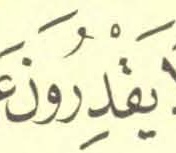 لَا يَقْدِرُونَ عَ